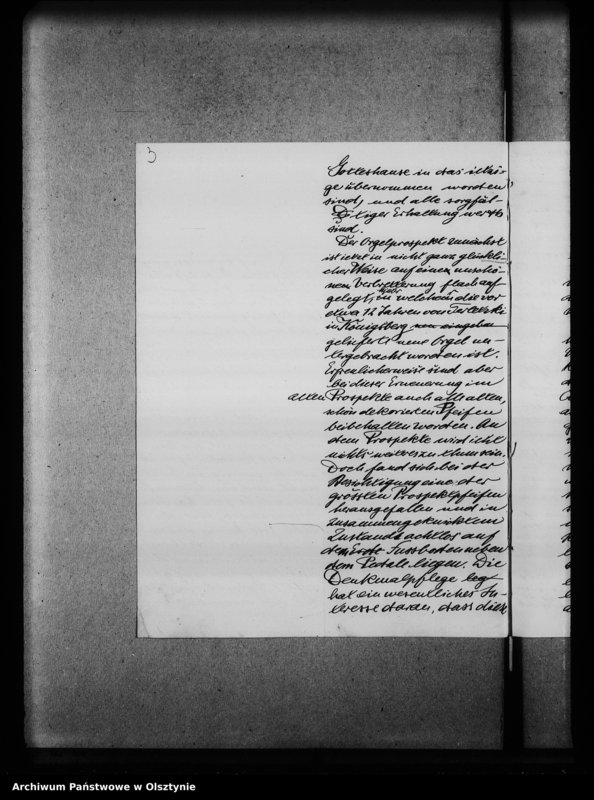 3
Gotteshause in das jetzi-
ge übernommen worden
sind, und alle sorgfäl-
tiger Erhaltung wert
sind.
Der Orgelprospekt zunächst
ist jetzt in nicht ganz glückli-
cher Weise auf einen unschö-
nen flach auf-
gelegt, in welchem die vor
etwa 12 Jahren von Terletzki
in Königsberg neu eingebau
gelieferte neue Orgel un-
tergebracht worden ist.
Erfreulicherweise sind aber
bei dieser Erneuerung im
alten Prospekte auch alle alten,
schön dekorierten Pfeifen
beibehalten worden. An
dem Prospekte wird jetzt
nichts weiteres zu thun sein.
Doch fand sich bei der
Besichtigung eine der
grössten Prospektpfeifen
herausgefallen und in
zusammengeknicktem
Zustande achtlos auf
dem Fussboden neben
dem liegen. Die
Denkmalpflege
hat ein wesentliches In-
teresse daran, dass diese
Archiwum Państwowe w Olsztynie